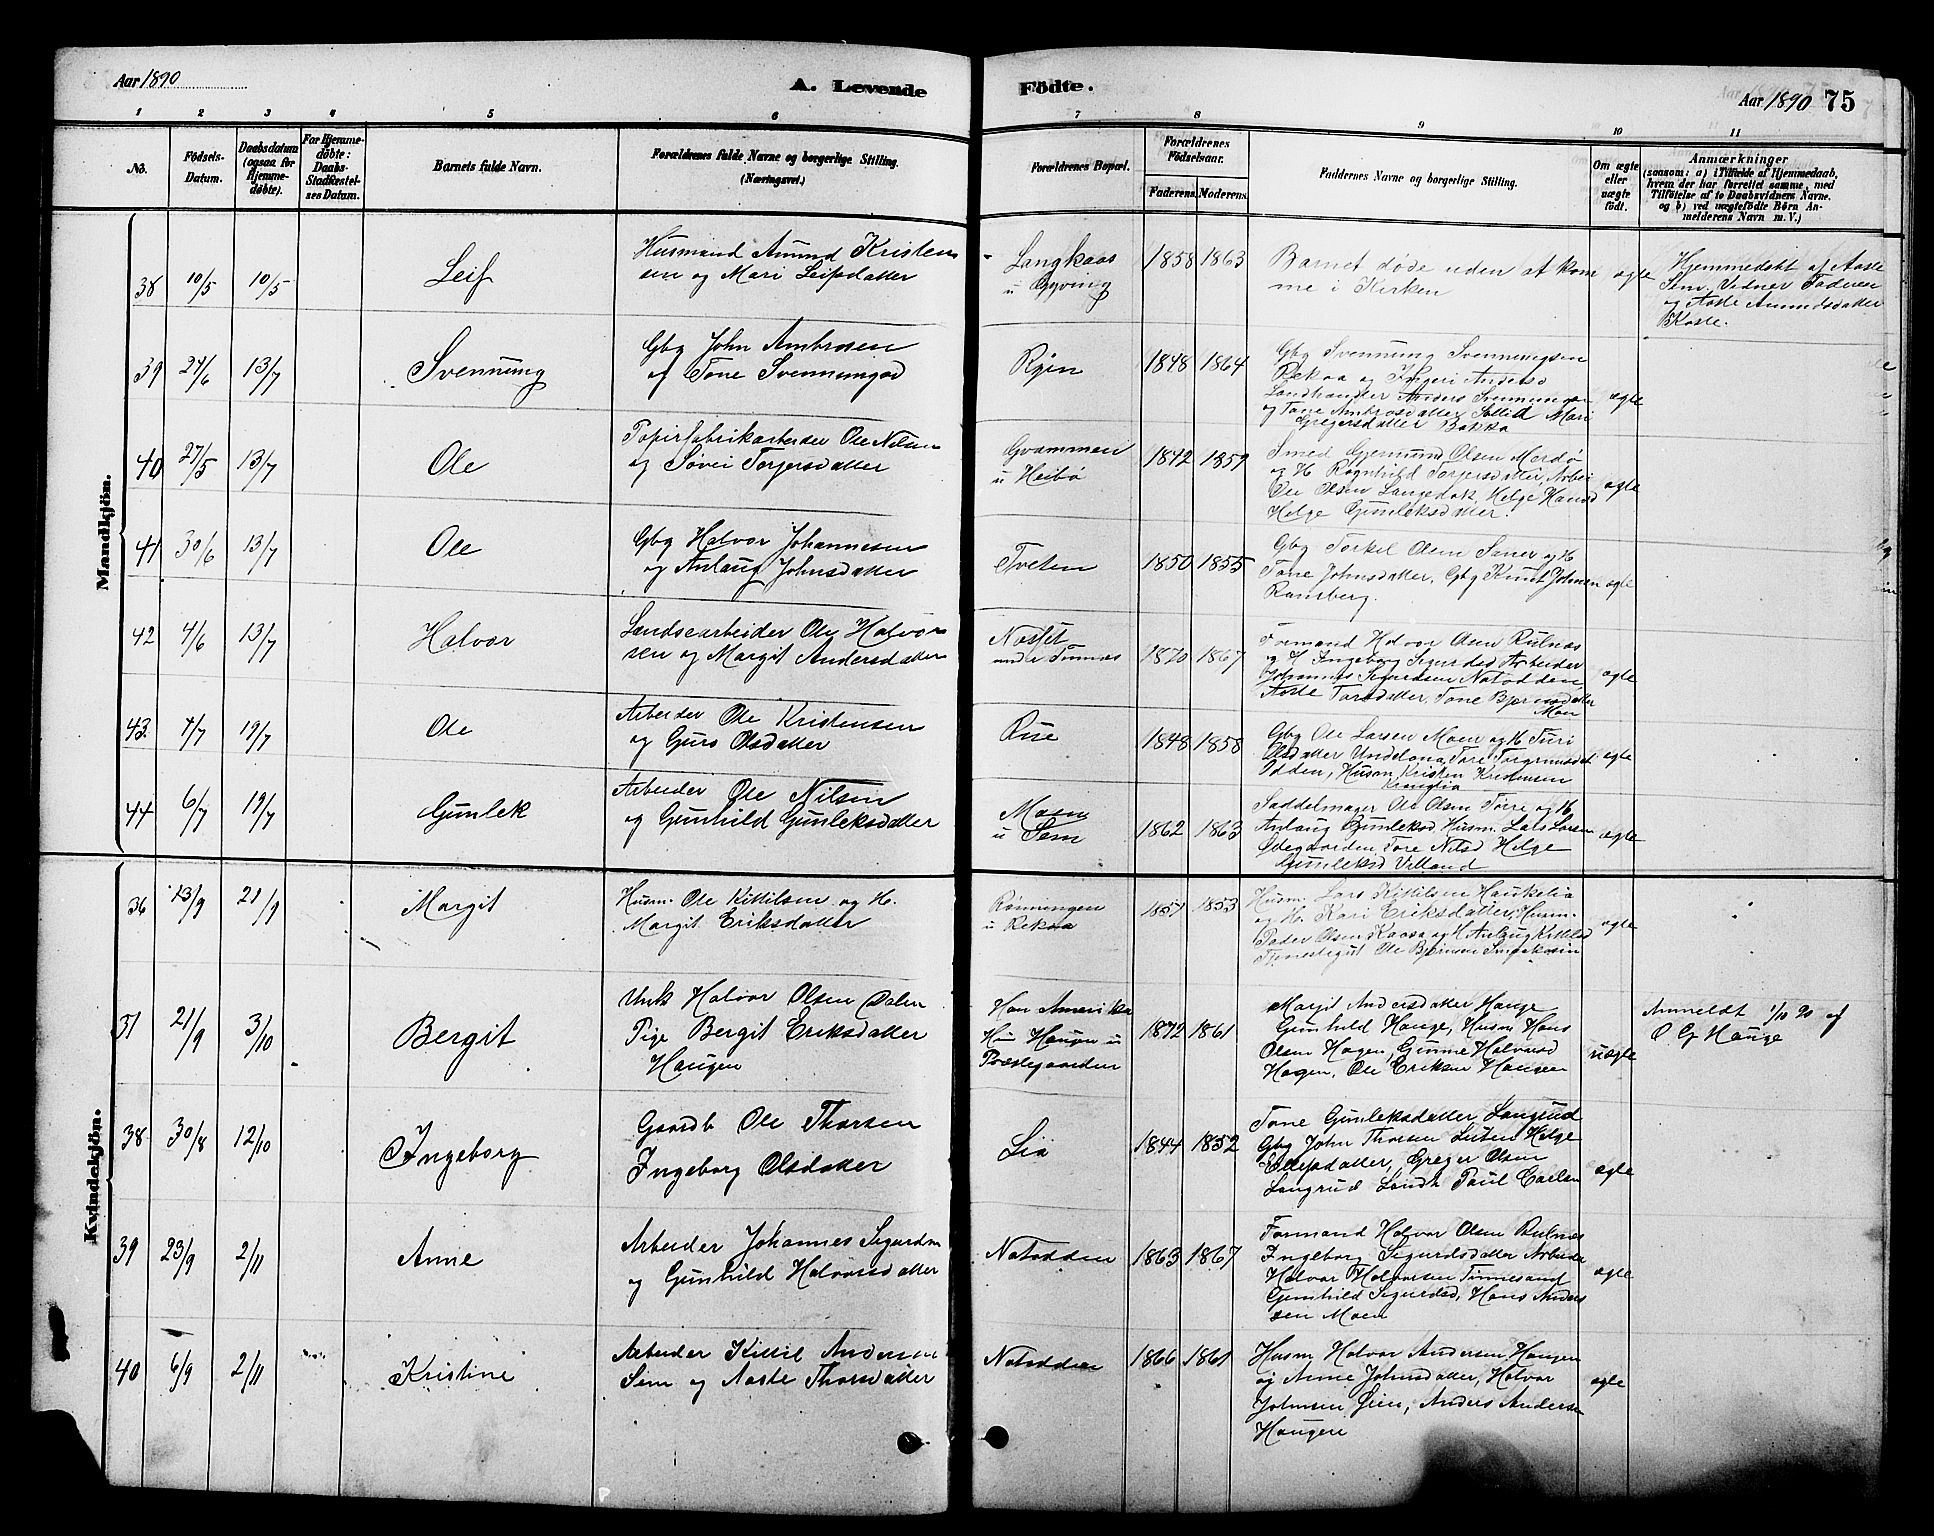 Aar 1890
A. Levende
Födte.
Aar 1890 75
1 2 3 4 5 6 7 8 9 10 11
No.
Födsels-
Datum.
Daabsdatum
(ogsaa for
Hjemme-
døbte).
For Hjemme-
døbte:
Daabs-
Stadfæstel-
ses Datum.
Barnets fulde Navn.
Forældrenes fulde Navne og borgerlige Stilling.
(Næringsvei.)
Forældrenes Bopæl.
Forældrenes
Födselsaar.
Faderens. Moderens.
Faddernes Navne og borgerlige Stilling.
Om ægte
eller
uægte
født.
Anmærkninger
(saasom: a) i Tilfælde af Hjemmedaab,
hvem der har forrettet samme, med
Tilföielse af to Daabsvidners Navne,
og b) ved uægtefödte Börn An-
melderens Navn m. V.)
Mandkjön.
38 10/5 10/5 Leif
Husmand Amund Kristen
sen og Mari Leifsdatter
Langkaas
u Gyving
1858 1863
Barnet døde uden at kom
me i Kirken
ægte
Hjemmedøbt af Aaste
Sem, Vidner Faderen
og Aaste Amundsdatter
Kaste.
39 24/6 13/7 Svennung
Gbg John Ambrosen
af Tone Svennungsd
Rÿen
1848 1864
Gbg Svennung Svennungsen
Rekaa og Ingeri Andersd
Landhandler Anders Svennungsen
og Tone Ambrosdatter Sollid Mari
Gregersdatter Bakka
ægte
40 27/5 13/7 Ole
Papirfabrikarbeider Ole Nilsen
og Søvei Torjersdatter
Gvammen
u Heibø
1842 1857
Smed Gjermund Olsen Mordø
og H. Ragnhild Torjersdatter, Arbei
Ole Olsen Langedok, Helge Hansd
Helge Gunleksdatter.
ægte
41 30/6 13/7 Ole
Gbg Halvor Johannesen
og Anlaug Johnsdatter
Tveten
1850 1855
Gbg Torkel Olsen Saner og H
Tone Johnsdatter, Gbg Knut Johnsen
Ramberg.
ægte
42 4/6 13/7 Halvor
Landsearbeider Ole Halvor
sen og Margit Andersdatter
Næsset
under Tinnæs
1870 1867
Formand Halvor Olsen Rulnæs
og H Ingeborg Sigurdsd Arbeider
Johannes Sigurdsen Notodden,
Aaste Torsdatter, Tone Bjørnsdatter
Moen
ægte
43. 4/7 19/7 Ole
Arbeider Ole Kristensen
og Guro Olsdatter
Rue
1848 1858
Gbg Ole Larsen Moen og H Turi
Olsdatter Undelona, Tore Torgrimsdat
Odden, Husm Kristen Kristensen
ægte
44 6/7 19/7 Gunlek
Arbeider Ole Nilsen
og Gunhild Gunleksdatter
Moen
u Sem
1862 1863
Saddelmager Ole Olsen Torre og H
Anlaug Gunleksd, Husm. Lars Larsen
Ødegaarden, Tore Nilsd Helge
Gunleksd Villand
ægte
Kvindekjön.
36 13/9 21/9 Margit
Husm. Ole Kittilsen og H.
Margit Eriksdatter
Rønningen
u Rekaa
1857 1853
Husm. Lars Kittilsen Haukelia
og H. Kari Eriksdatter, Husm.
Peder Olsen Kaasa og H Anlaug Kittilsd
Ole Bjørnsen
ægte
37 21/9 3/10 Bergit
Unk Halvor Olsen Dalen
Pige Bergit Eriksdatter
Haugen
Han Amerika
Hun Haugen u
Præstegaarden
1872 1861
Margit Andersdatter Hauge
Gunhild Hauge, Husm Hans
Olsen Hagen, Gunne Halvorsd
Hagen, Ole Eriksen Haugen
uægte
Anmeldt 1/10 90 af
O. G. Hauge
38 30/8 12/10 Ingeborg
Gaardb Ole Thorsen
Ingeborg Olsdatter
Lia
1844 1852
Tone Gunleksdatter Langrud
Gbg John Thorsen Luten Helge
Ellefsdatter, Greger Olsen
Langrud Landh Paul Carlsen
ægte
39 23/9 2/11 Anne
Arbeider Johannes Sigurdsen
og Gunhild Halvorsdatter
Notodden
1863 1867
Formand Halvor Olsen Rulnæs
Ingeborg Sigurdsdatter Arbeider
Halvor Halvorsen Tinnesand
Gunhild Sigurdsd, Hans Anders
sen Moen
ægte
40 6/9 2/11 Kristine
Arbeider Kittil Andersen
Sem og Aaste Thorsdatter
Notodden
1866 1861
Husm Halvor Andersen Haugen
og Anne Johnsdatter, Halvor
Johnsen Øien, Anders Andersen
Haugen
ægte